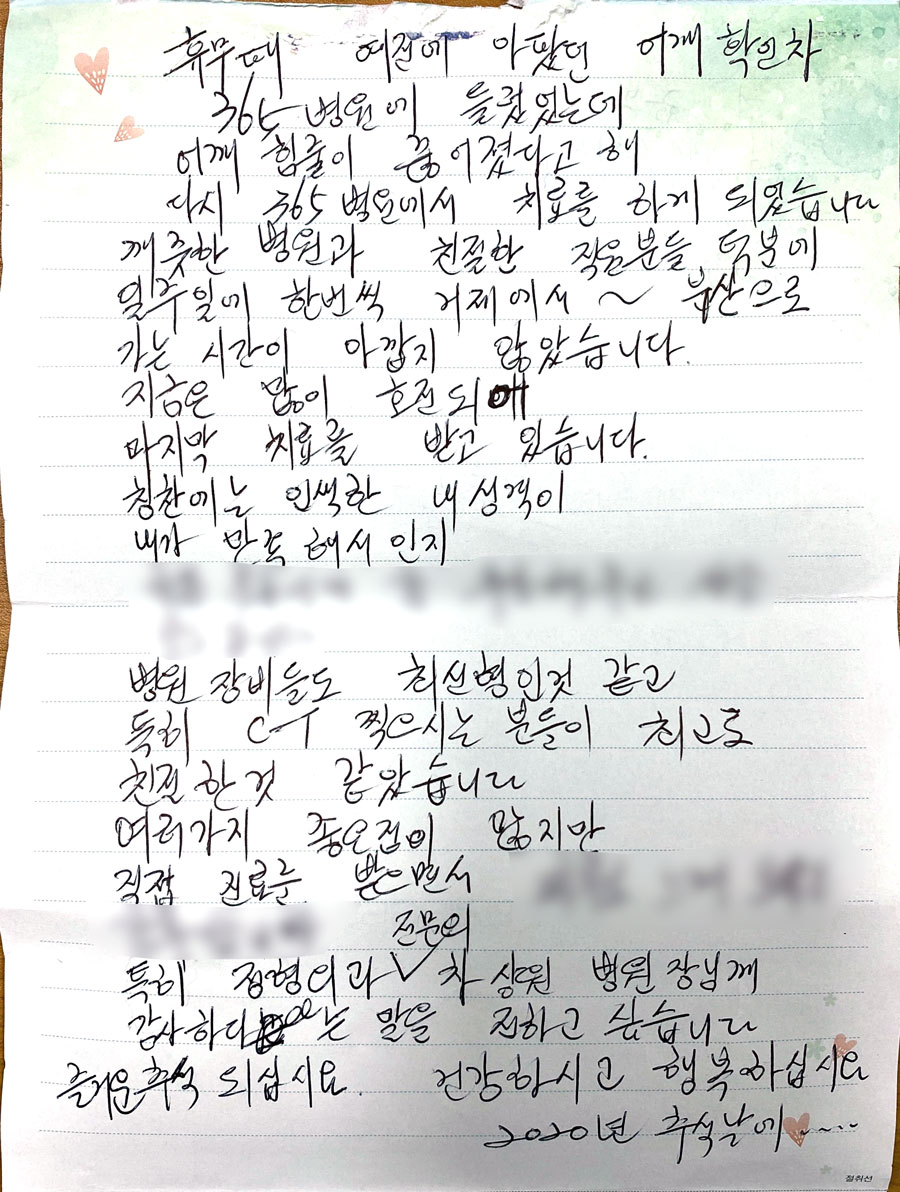 휴무때 예전에 아팠던 어깨 확인차
365병원에 들렀었는데
어깨 힘줄이 끊어졌다고 해
다시 365병원에서 치료를 하게 되었습니다
깨끗한 병원과 친절한 직원분들 덕분에
일주일에 한번씩 거제에서 ~ 부산으로
가는 시간이 아깝지 않았습니다.
지금은 많이 호전되어
마지막 치료를 받고 있습니다.
칭찬에는 인색한 내 성격이
내가 만족해서 인지
병원 장비들도 최신형인것 같고
특히 CT 찍으시는 분들이 최고로
친절한것 같았습니다
여러가지 좋은점이 많지만
직접 진료를 받으면서
전문의
특히 정형외과 ∨ 차상원 병원장님께
감사하다는 말을 전하고 싶습니다
즐거운추석 되십시요. 건강하시고 행복하십시요
2020년 추석날에.....
절취선